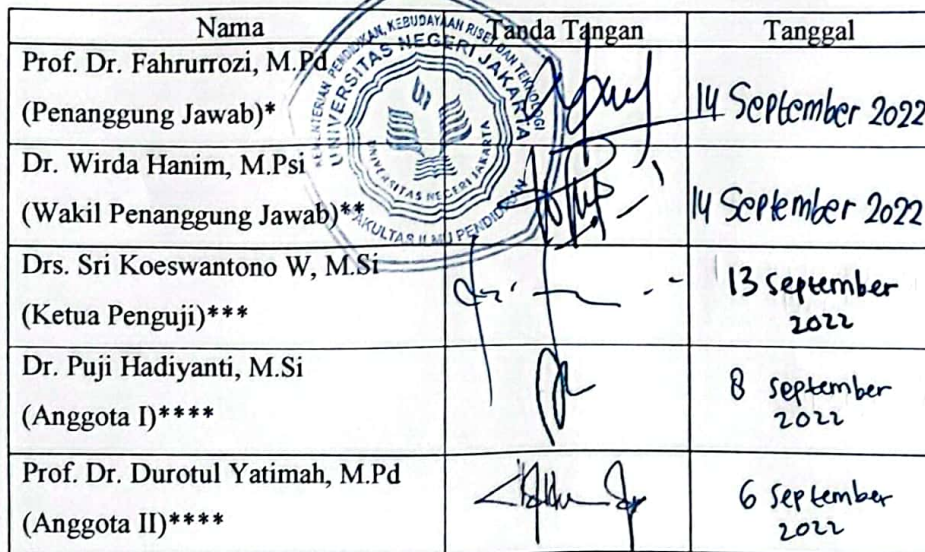 Nama Tanda Tangan Tanggal
Prof. Dr. Fahrurrozi, M.Pd
(Penanggung Jawab)* 14 September 2022
Dr. Wirda Hanim, M.Psi
(Wakil Penanggung Jawab)** 14 September 2022
Drs. Sri Koeswantono W, M.Si
(Ketua Penguji)*** 13 September
2022
Dr. Puji Hadiyanti, M.Si
(Anggota I)**** 8 September
2022
Prof. Dr. Durotul Yatimah, M.Pd
(Anggota II)**** 6 September
2022
KEMENTERIAN PENDIDIKAN, KEBUDAYAAN RISET DAN TEKNOLOGI
UNIVERSITAS NEGERI JAKARTA
UNIVERSITAS NEGERI JAKARTA
FAKULTAS ILMU PENDIDIKAN